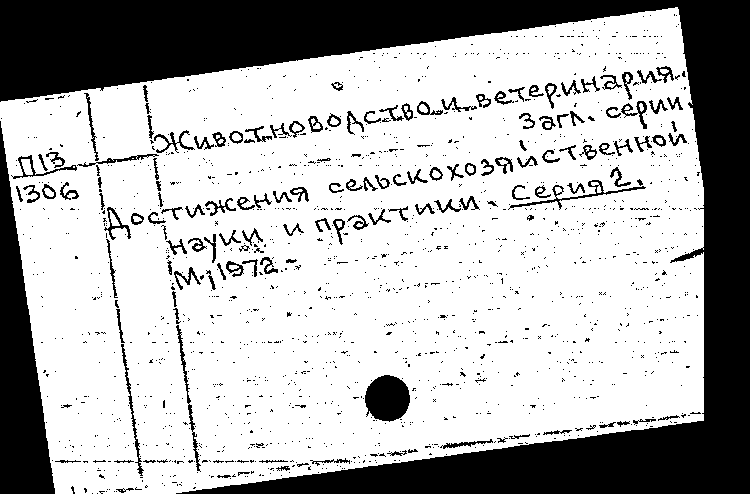 Животноводство и ветеринария.
Загл. серии.
П13
1306
Достижения сельскохозяйственной
науки и практики. Серия 2.
М., 1972-